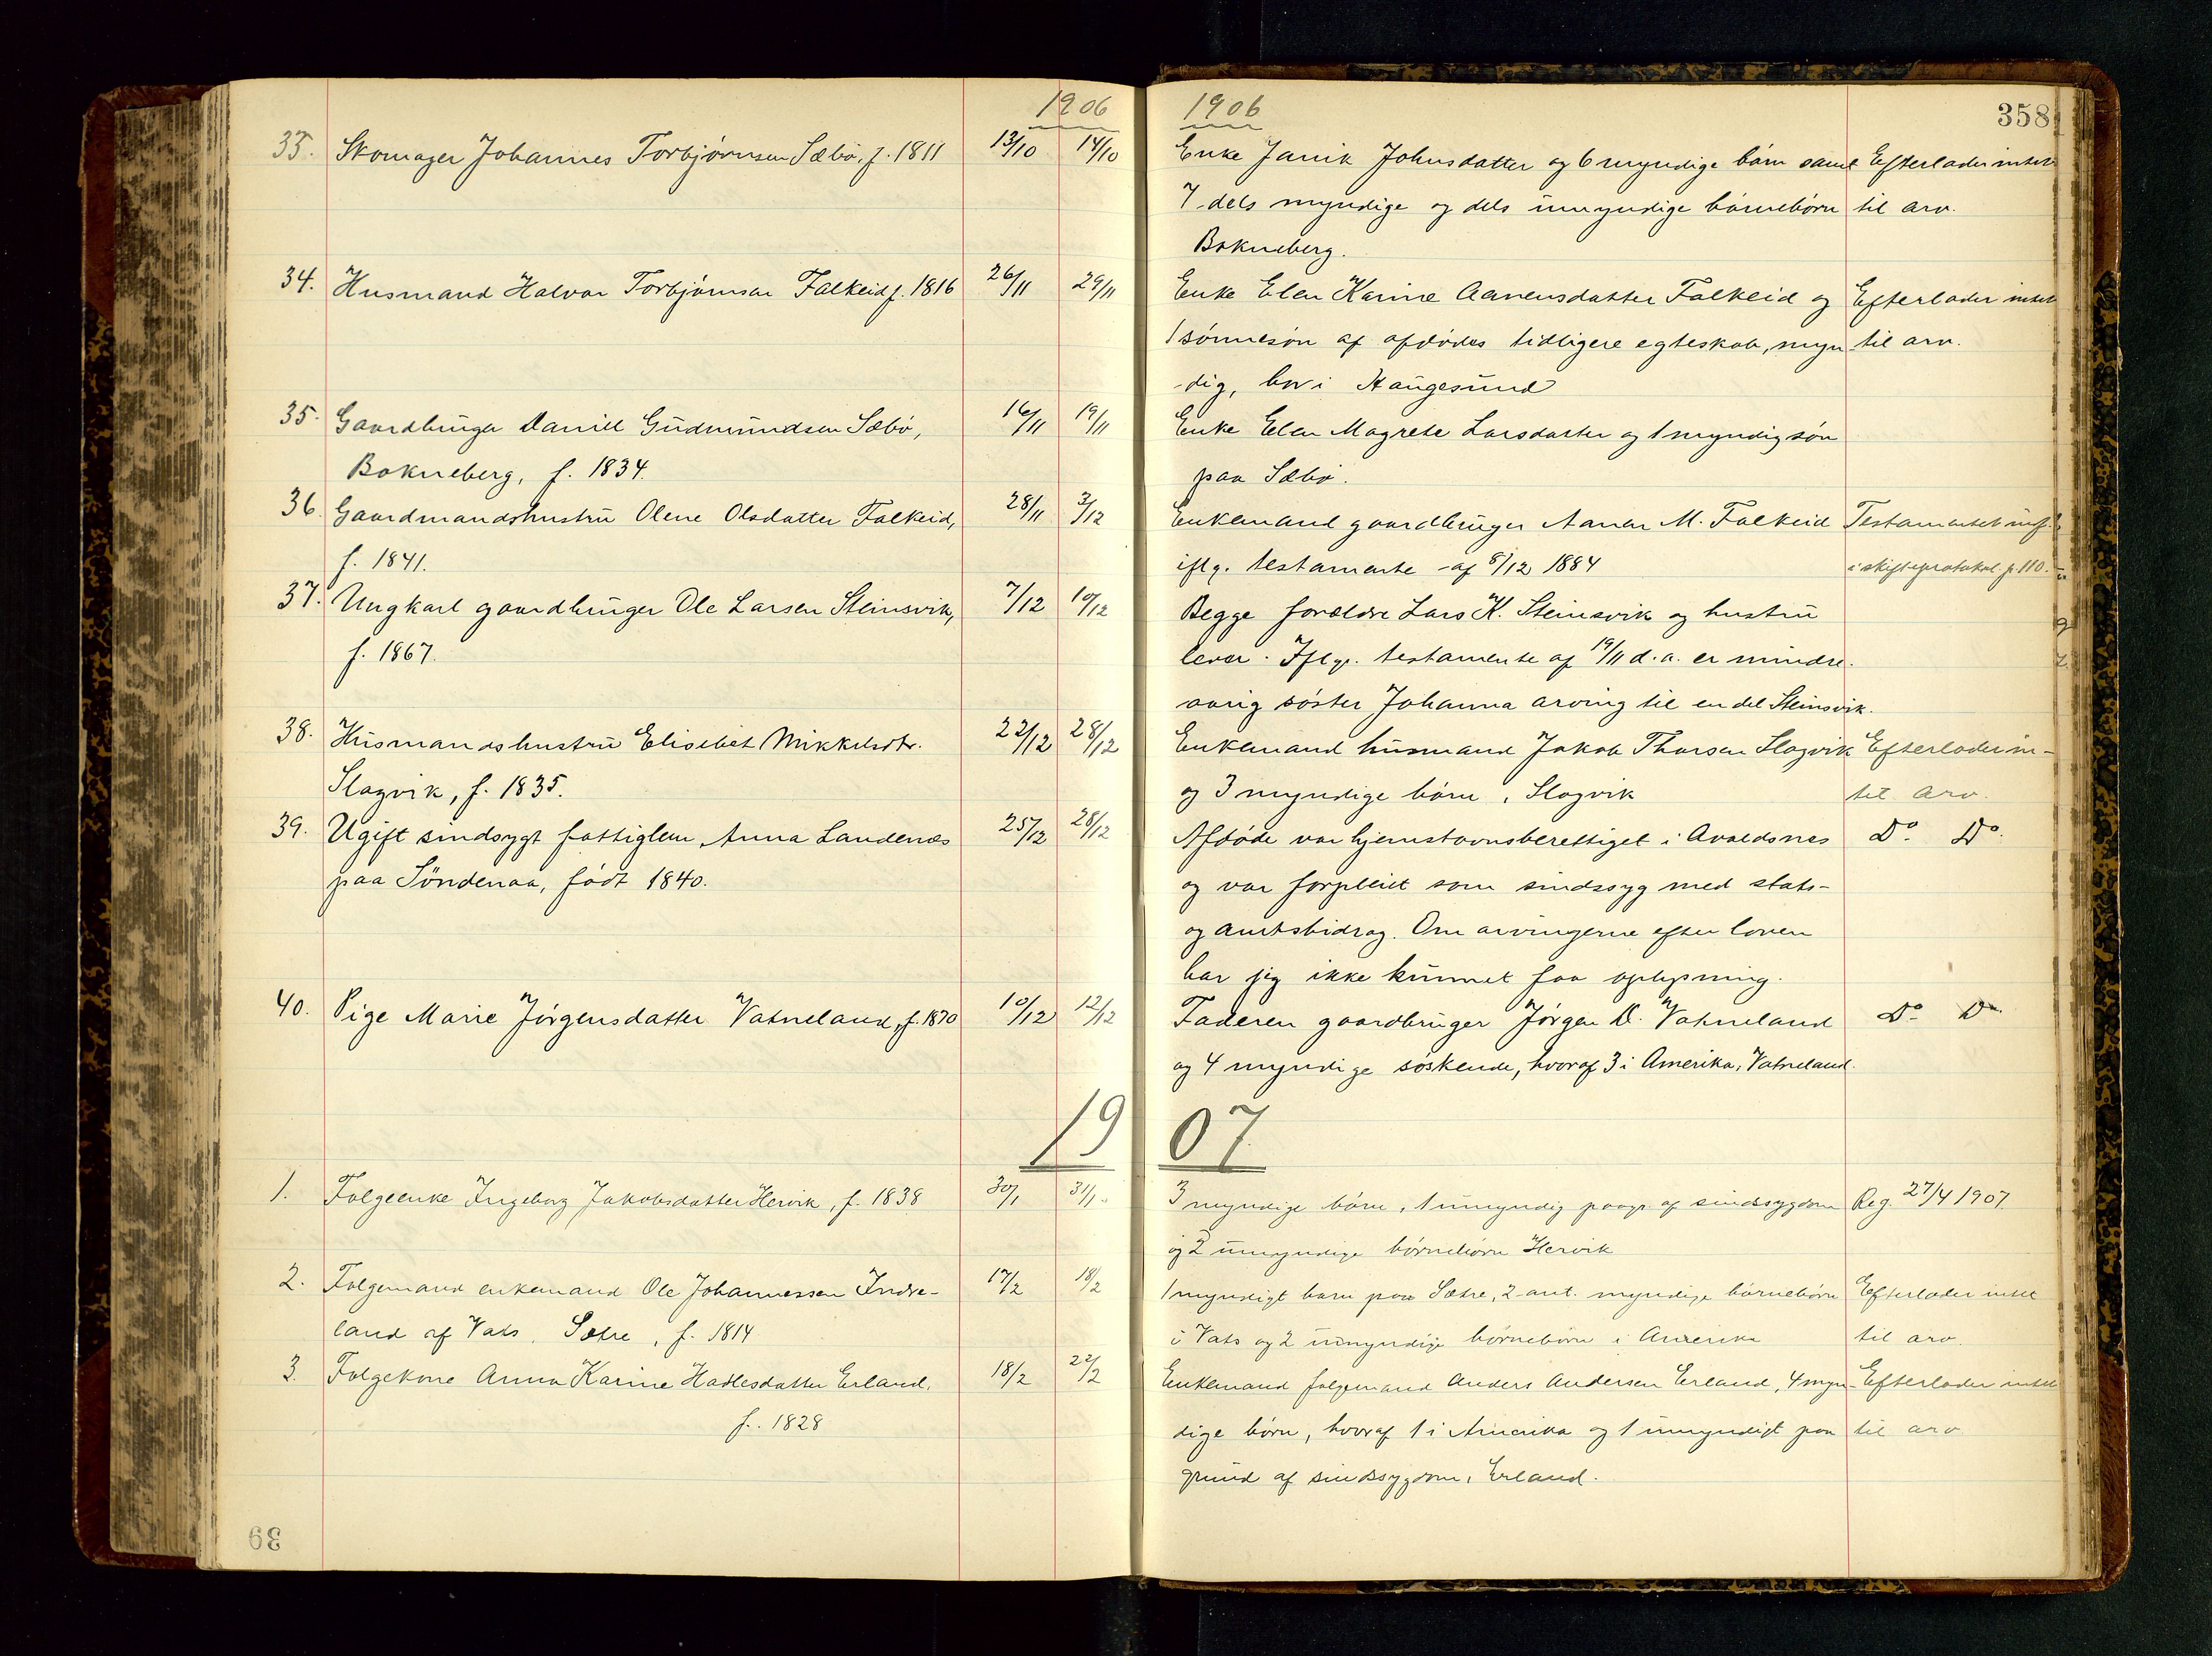 1906
1906
358
33. Skomager Johannes Torbjørnsen Sæbö, f. 1811 13/10 14/10 Enke Janik Johnsdatter og 6 myndige börn samt Efterlader intet
7 dels myndige og dels umyndige börnebörn til arv.
Bokneberg.
34. Husmand Halvor Torbjörnsen Falkeid f. 1816 26/11 29/11 Enke Elen Karine Aanensdatter Falkeid og Efterlader intet
1 sönnesön af afdödes tidligere egteskab, myn- til arv.
-dig, bor i Haugesund
35. Gaardbruger Daniel Gudmundsen Sæbö, 16/11 19/11 Enke Elen Magrete Larsdatter og 1 myndig sön
Bokneberg, f. 1834. paa Sæbö.
36. Gaardmandshustru Olene Olsdatter Falkeid, 28/11 3/12 Enkemand gaardbruger Aanen M. Falkeid Testamentet
f. 1841. iflg. testamente af 8/12 1884 i skifteprotokol p. 110.
37. Ungkarl gaardbruger Ole Larsen Steinsvik, 7/12 10/12 Begge forældre Lars K. Steinsvik og hustru
f. 1867. lever. Iflg. testamente af 19/11 d.a. er mindre-
aarig söster Johanna arving til en del Steinsvik.
38. Husmandshustru Elisebet Mikkelsdtr. 22/12 28/12 Enkemand husmand Jakob Thorsen Slagvik Efterlader in-
Slagvik, f. 1835. og 3 myndige börn, Slagvik tet arv.
39. Ugift sindsygt fattiglem Anna Landenæs 25/12 28/12 Afdöde var hjemstavnsberettiget i Avaldsnes Do. Do.
paa Söndenaa, födt 1840. og var forpleiet som sindssyg med stats-
og amtsbidrag. Om arvingerne efter loven
har jeg ikke kunnet faa oplysning.
40. Pige Marie Jörgensdatter Vatneland, f. 1870 10/12 12/12 Faderen gaardbruger Jörgen D. Vatneland Do. Do.
og 4 myndige söskende, hvoraf 3 i Amerika, Vatneland.
1907
1. Folgeenke Ingeborg Jakobsdatter Hervik, f. 1838 30/1 31/1. 3 myndige börn, 1 umyndig paagr. af sindssygdom Reg. 27/4 1907.
og 2 umyndige börnebörn Hervik
2. Folgemand enkemand Ole Johannessen Indre- 17/2 18/2 1 myndigt barn paa Sætre, 2 ant. myndige börnebörn Efterlader intet
land af Vats, Sætre, f. 1814 i Vats og 2 umyndige börnebörn i Amerika til arv.
3. Folgekone Anna Karine Hadlesdatter Erland, 18/2 22/2 Enkemand folgemand Anders Andersen Erland, 4 myn- Efterlader intet
f. 1828 dige börn, hvoraf 1 i Amerika og 1 umyndigt paa til arv.
grund af sindssygdom, Erland.
39